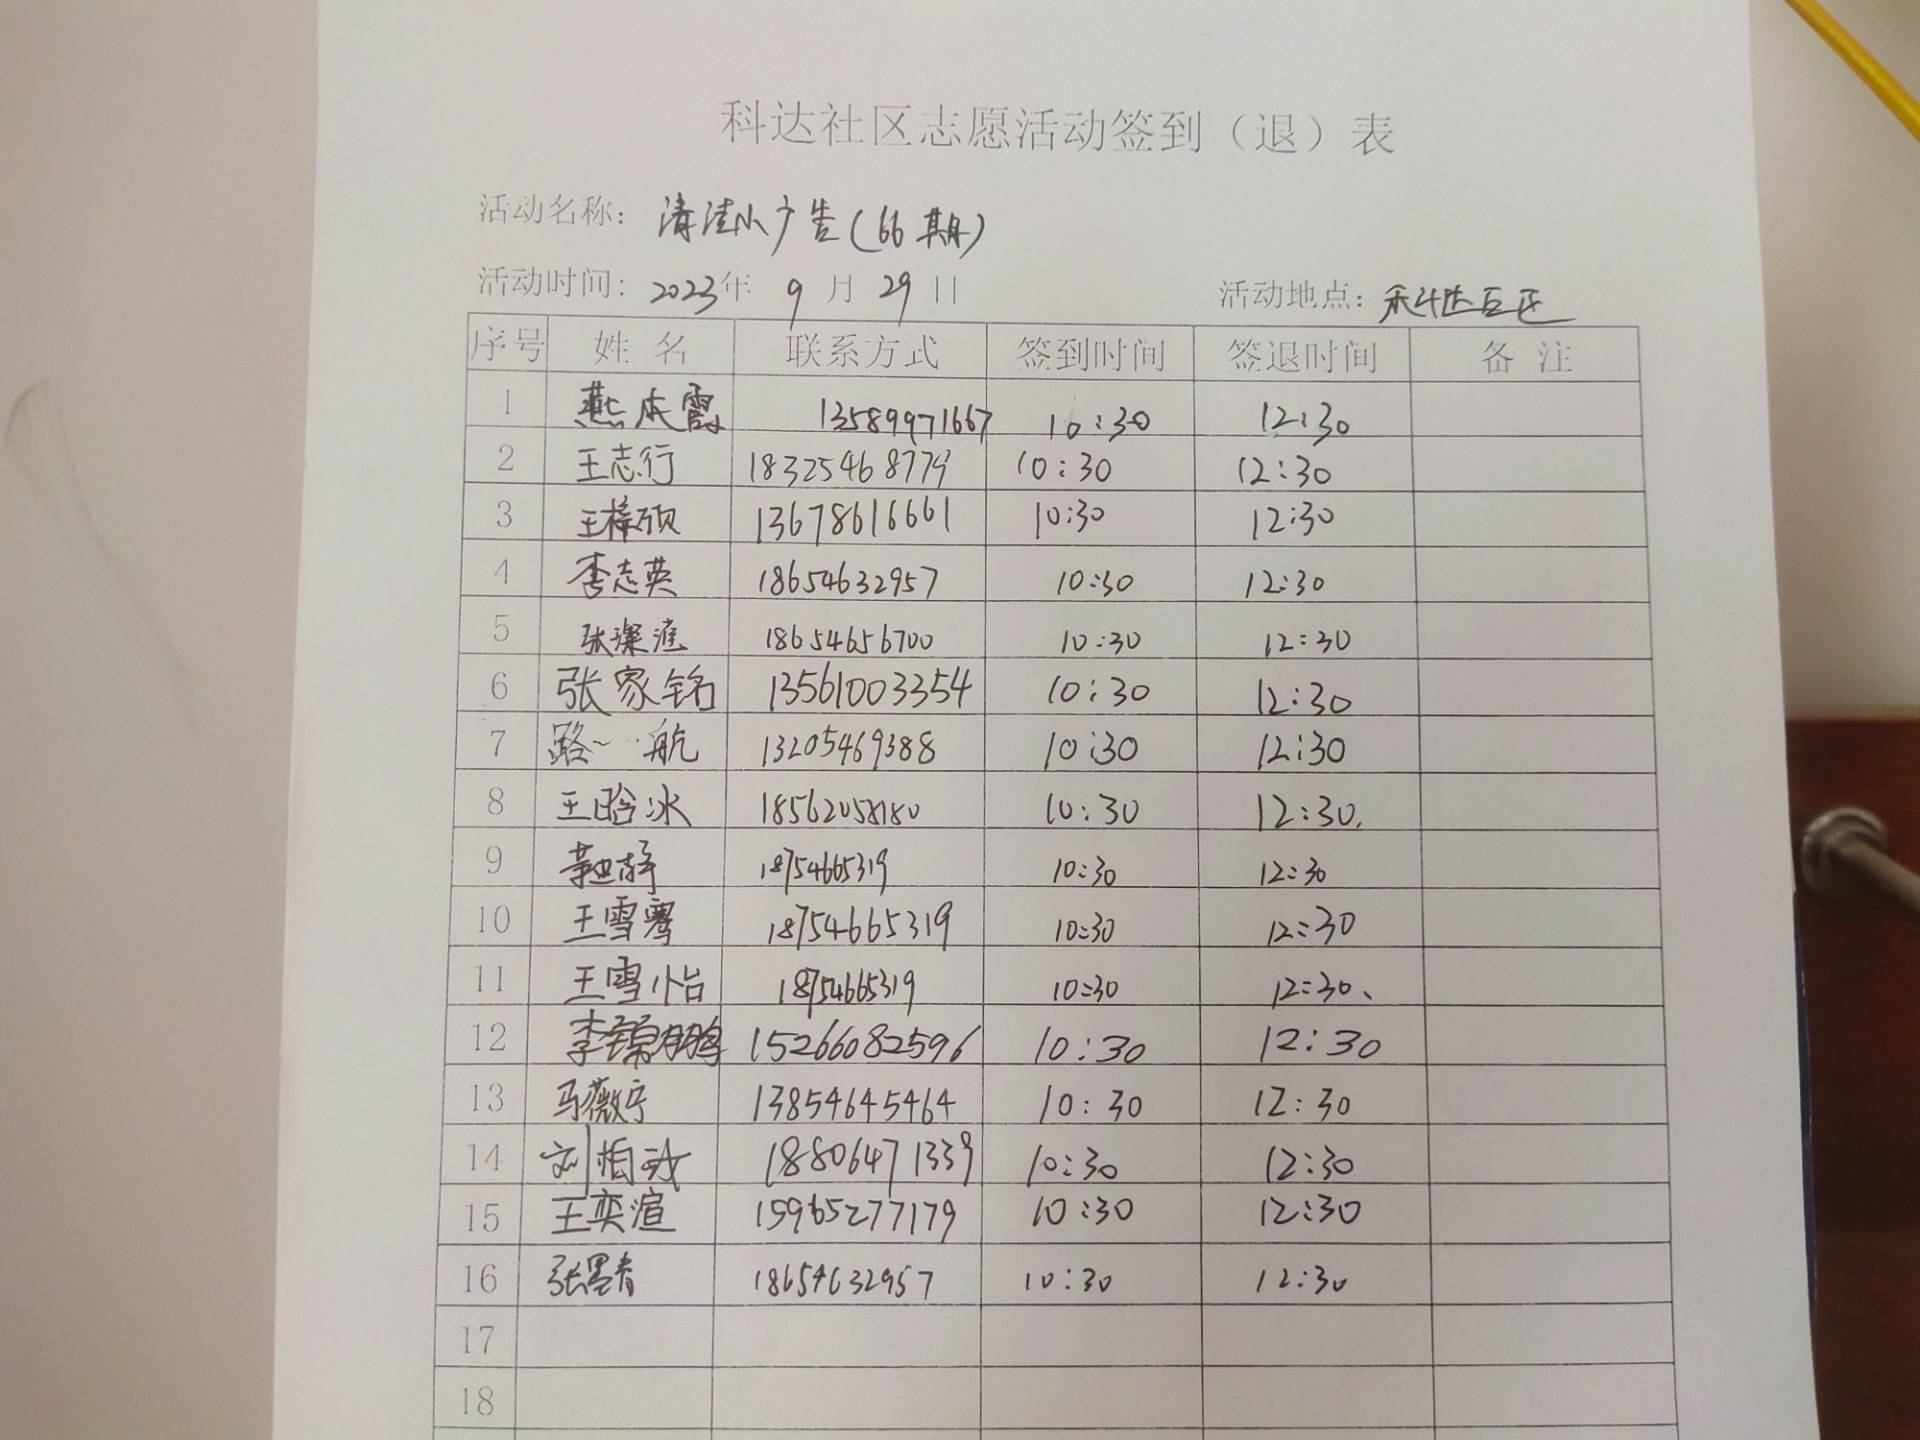 科达社区志愿活动签到（退）表
活动名称：清洁小广告(66期)
活动时间：2023年 9月 29日 活动地点：科达社区
序号 姓名 联系方式 签到时间 签退时间 备注
1 燕成霞 13589971667 10:30 12:30
2 王志行 18325468779 10:30 12:30
3 王梓硕 13678616661 10:30 12:30
4 李志英 18654632957 10:30 12:30
5 张 18654656700 10:30 12:30
6 张家铭 13561003354 10:30 12:30
7 路一航 13205469388 10:30 12:30
8 王晗冰 18562058180 10:30 12:30.
9 18754665319 10:30 12:30
10 王雪骞 18754665319 10:30 12:30
11 王雪怡 18754665319 10:30 12:30、
12 李锦鹏 15266082596 10:30 12:30
13 马薇宁 13854645464 10:30 12:30
14 刘柏 18806471339 10:30 12:30
15 王奕渲 15965277179 10:30 12:30
16 张墨青 18654632957 10:30 12:30
17
18